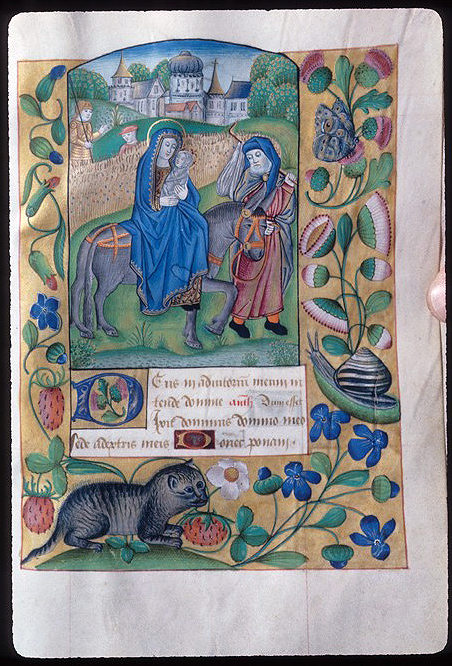 DEus in adiutoriū meum in
tende domine anth Dum esset
Ixit dominus domino meo
sede adextris meis Donec ponam.